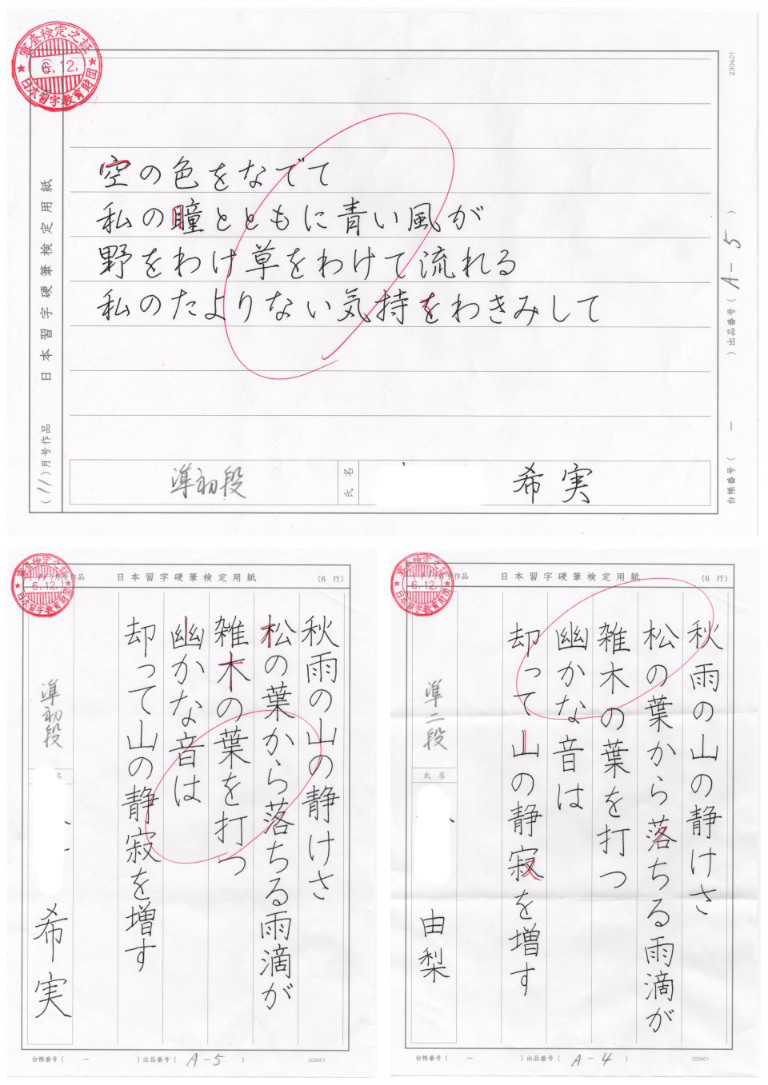 審査検定之証
6.12.
日本習字教育財団
230401
日本習字硬筆検定用紙
(11)月号作品
空の色をなでて
私の瞳とともに青い風が
野をわけ草をわけて流れる
私のたよりない気持をわきみして
準初段
氏名
希実
台帳番号( ー )出品番号( A-5 )
審査検定之証
6.12.
日本習字教育財団
月号作品
日本習字硬筆検定用紙
(6行)
秋雨の山の静けさ
松の葉から落ちる雨滴が
雑木の葉を打つ
幽かな音は
却って山の静寂を増す
準初段
名
希実
台帳番号( ー )出品番号( A-5 )
審査検定之証
6.12.
日本習字教育財団
月号作品
日本習字硬筆検定用紙
(6行)
秋雨の山の静けさ
松の葉から落ちる雨滴が
雑木の葉を打つ
幽かな音は
却って山の静寂を増す
準二段
氏名
由梨
台帳番号( ー )出品番号( A-4 )